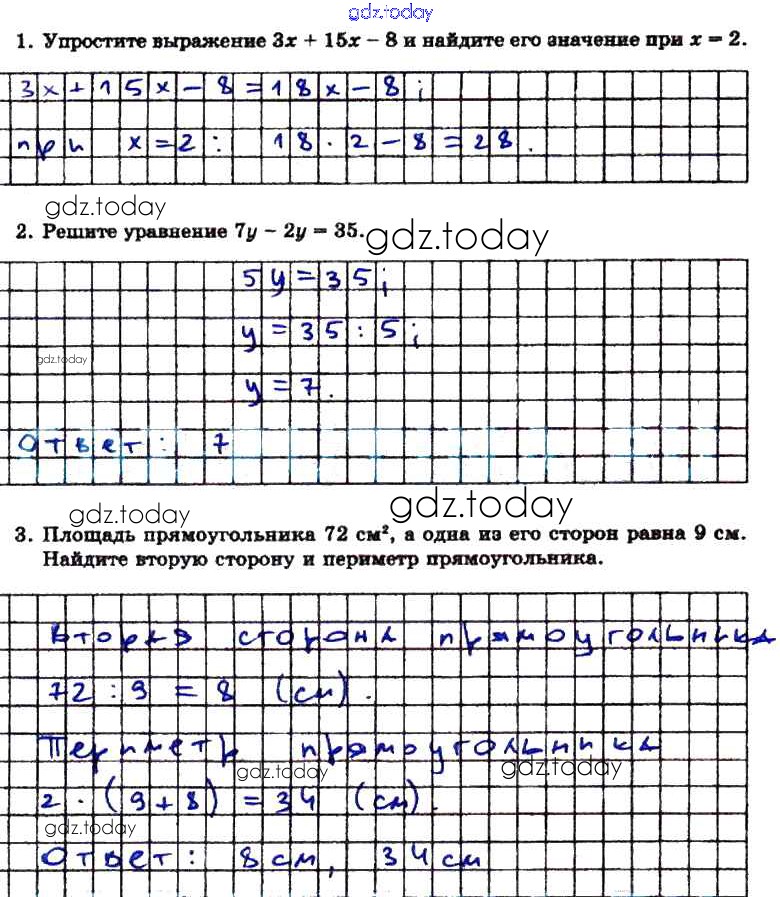 gdz.today
1. Упростите выражение 3x + 15x − 8 и найдите его значение при x = 2.
3x+15x−8=18x−8;
при x=2: 18·2−8=28.
gdz.today
2. Решите уравнение 7y − 2y = 35.
gdz.today
5y=35;
y=35:5;
gdz.today
y=7.
Ответ: 7
gdz.today
gdz.today
3. Площадь прямоугольника 72 см², а одна из его сторон равна 9 см.
Найдите вторую сторону и периметр прямоугольника.
Вторая сторона прямоугольника
72:9=8 (см).
Периметр прямоугольника
gdz.today
gdz.today
2·(9+8)=34 (см).
gdz.today
Ответ: 8см, 34см